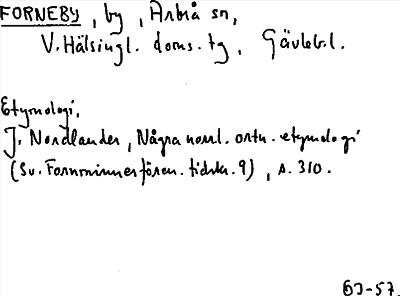 FORNEBY, by, Arbrå sn,
V. Hälsingl. doms. tg, Gävleb. l.
Etymologi,
J. Nordlander, Några norrl. ortn. etymologi
(Sv. Fornminnesfören. tidskr. 9), s. 310.
-57.